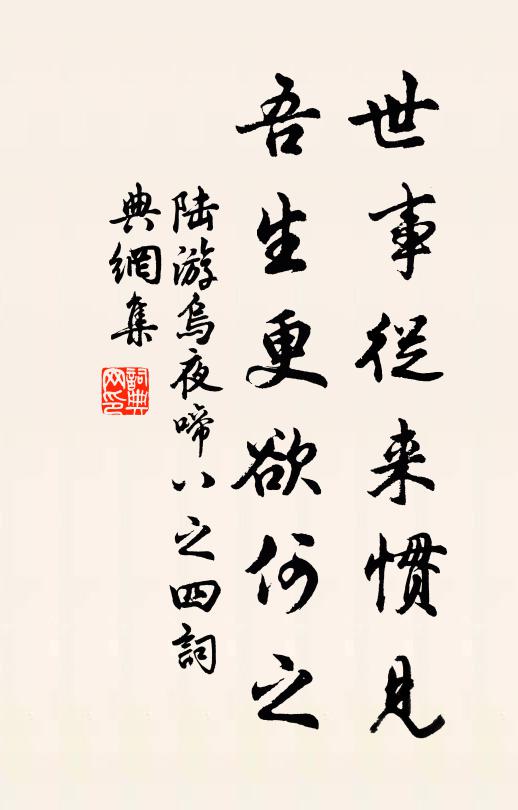 世事從来慣見
吾生更欲何之
陆游烏夜啼八之四詞
典網集
詞典
网印